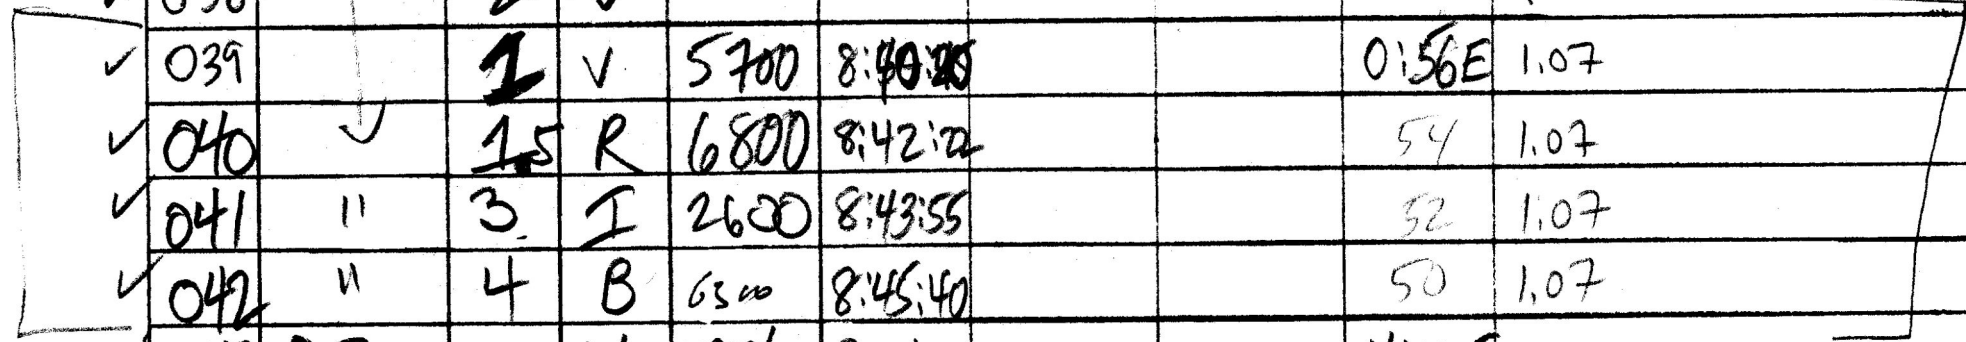 ✓ 039 1 V 5700 8:40:20 0:56E 1.07
✓ 040 1.5 R 6800 8:42:22 54 1.07
✓ 041 " 3 I 2600 8:43:55 52 1.07
✓ 042 " 4 B 6300 8:45:40 50 1.07